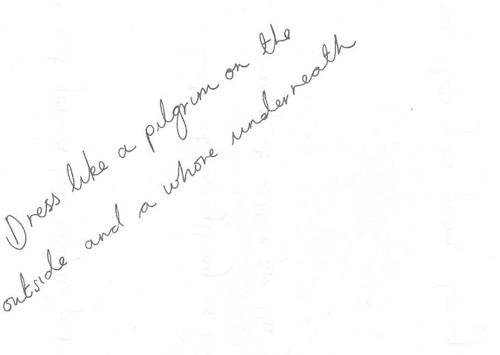 Dress like a pilgrim on the
outside and a whore underneath